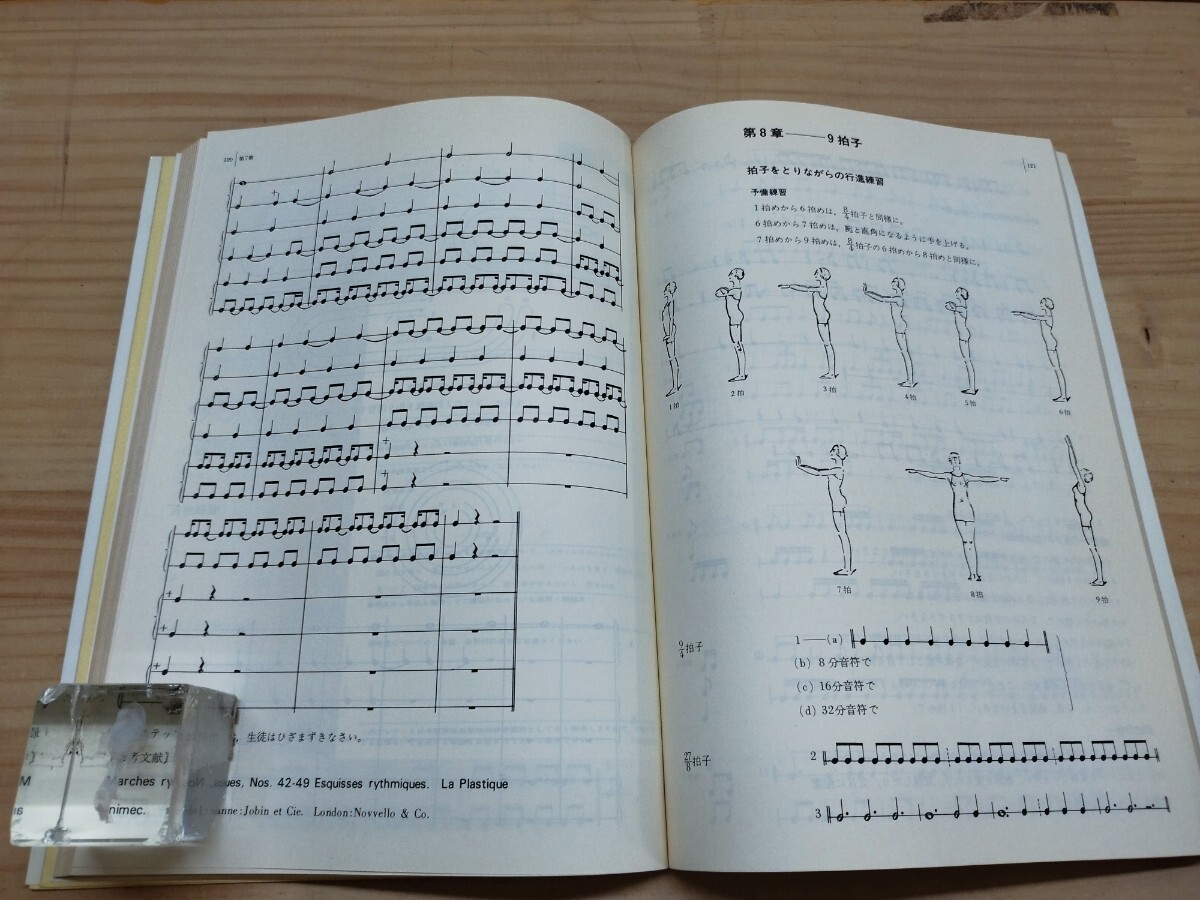 第7章
生徒はひざまずきなさい。
考文献]
Nos. 42-49 Esquisses rythmiques. La Plastique
animec.
anne:Jobin et Cie. London:Novvello & Co.
第8章——9拍子
121
拍子をとりながらの行進練習
予備練習
1拍めから6拍めは，8/4拍子と同様に。
6拍めから7拍めは，腕と直角になるように手を上げる。
7拍めから9拍めは，8/4拍子の6拍めから8拍めと同様に。
1拍
2拍
3拍
4拍
5拍
6拍
7拍
8拍
9拍
9/4拍子
1——(a)
(b) 8分音符で
(c) 16分音符で
(d) 32分音符で
27/8拍子
2
3